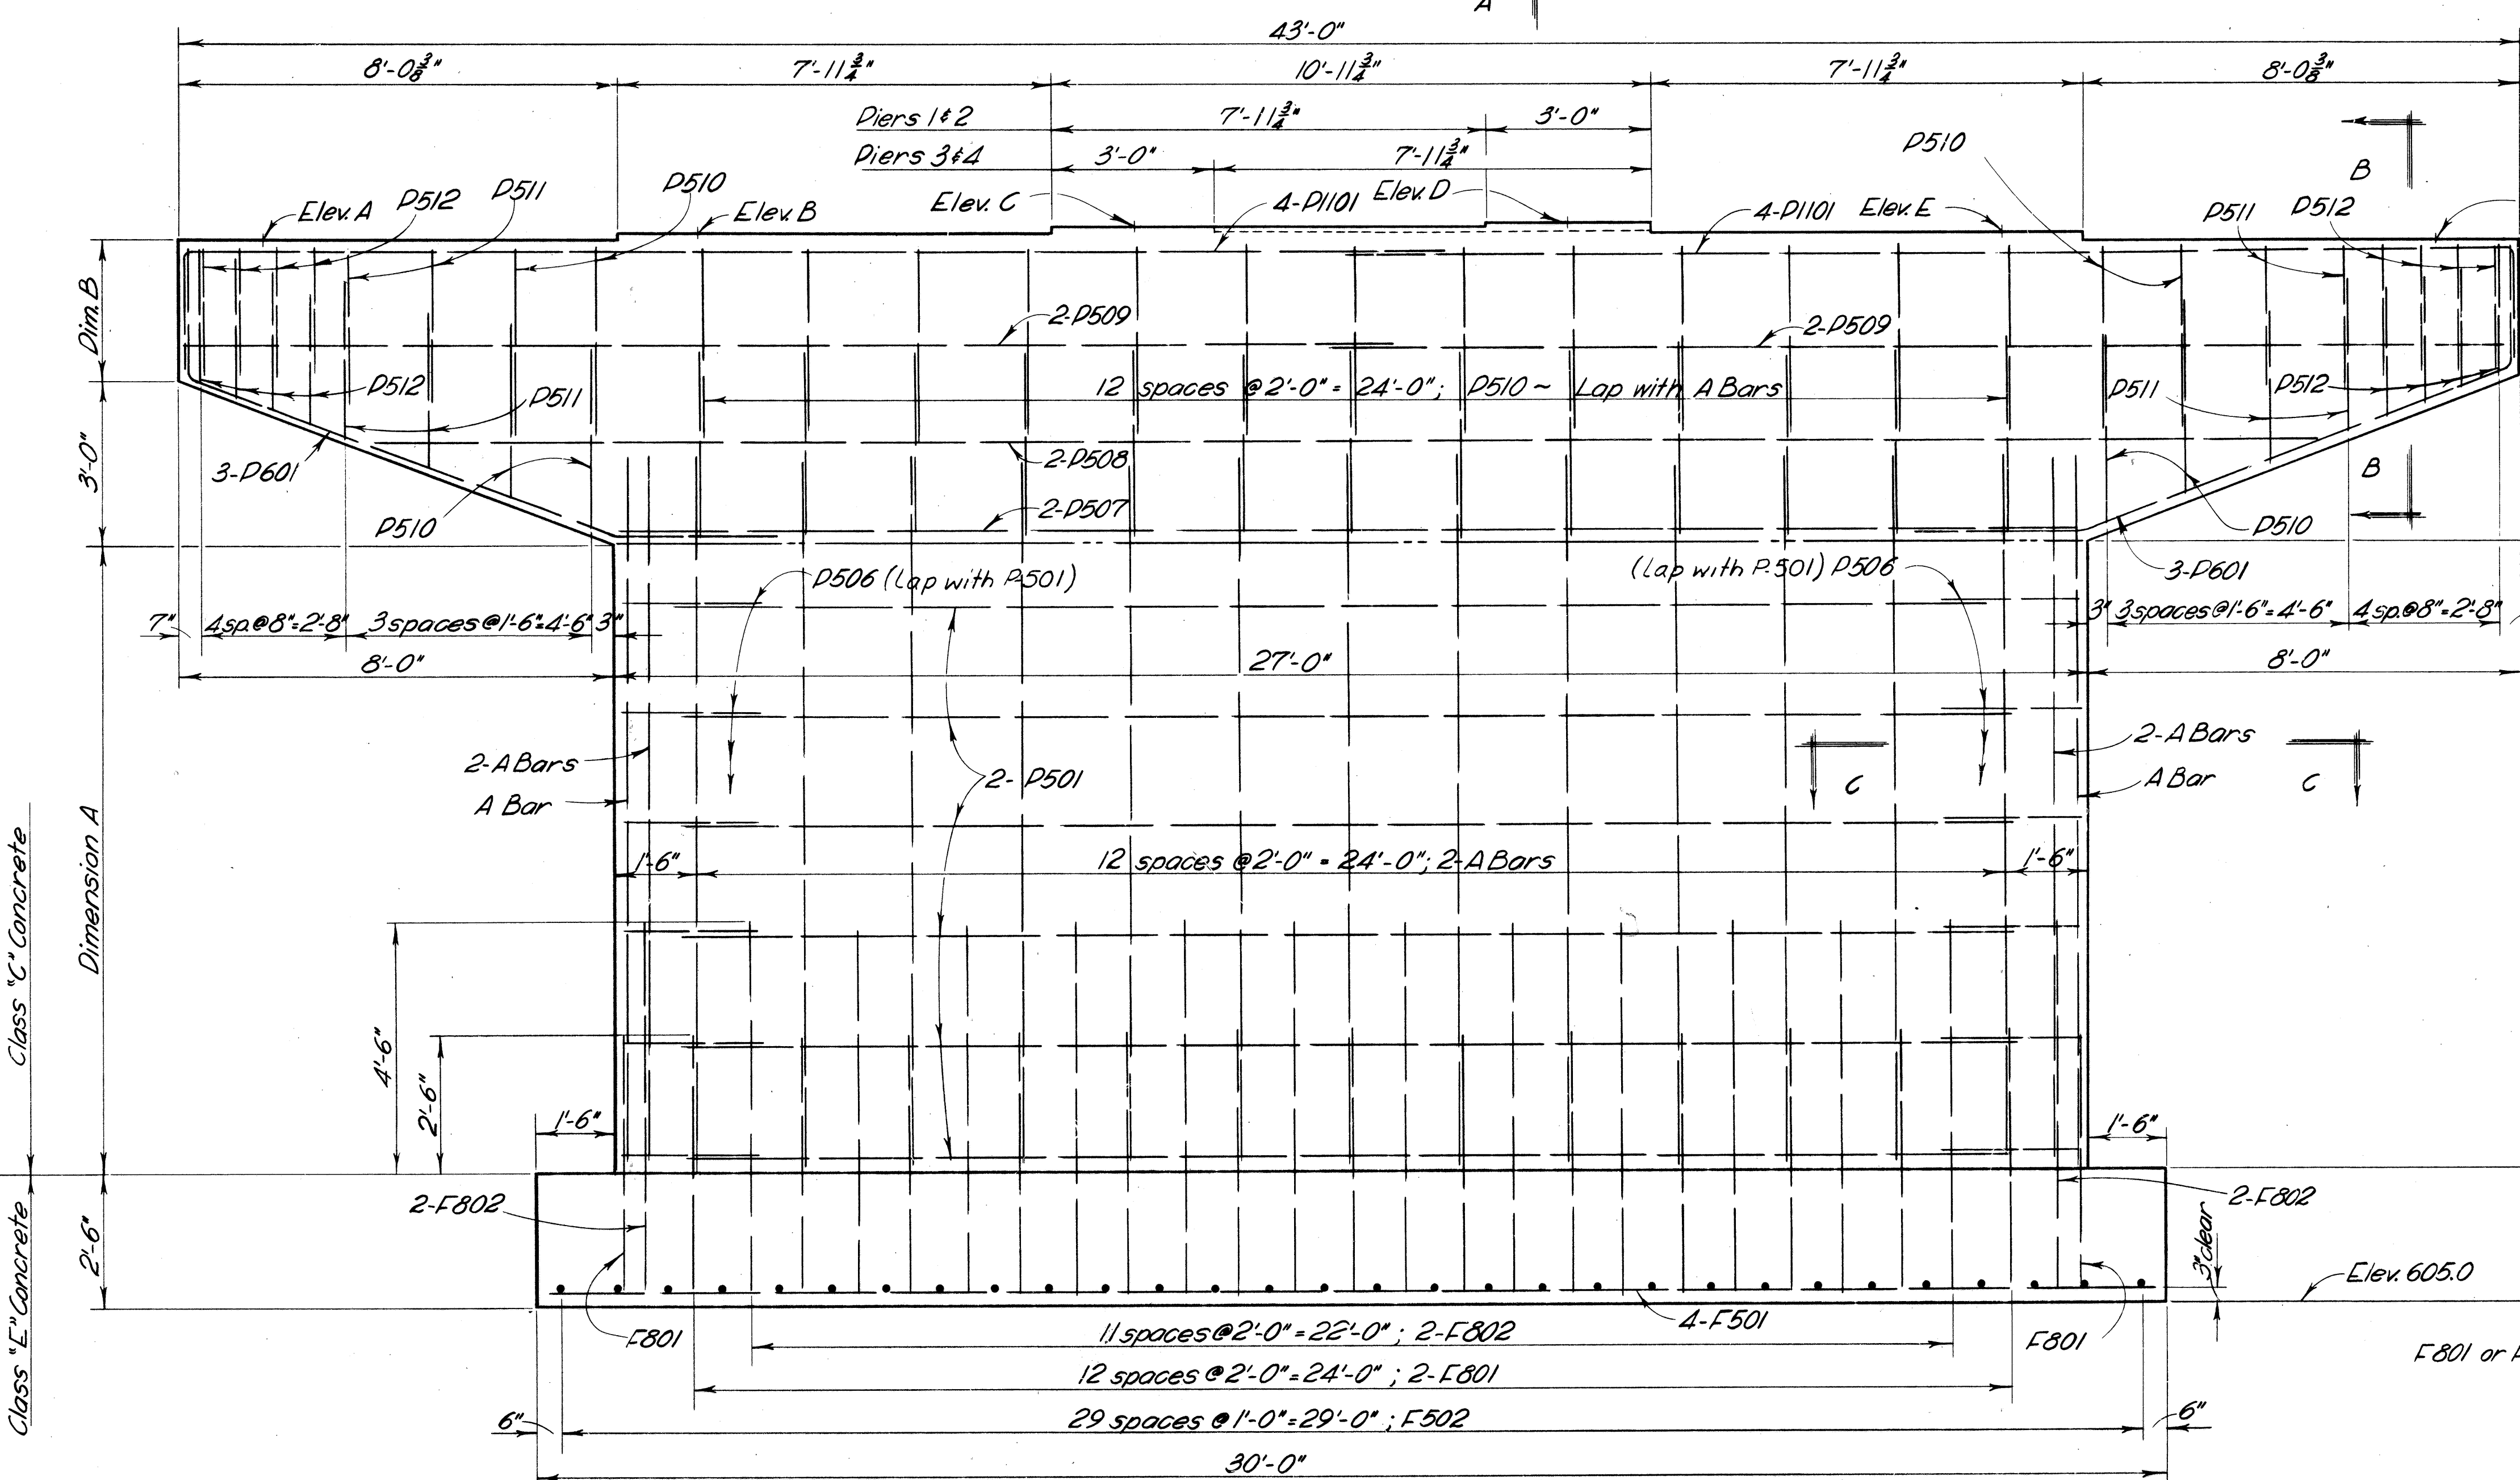 A
43'-0"
8'-0 3/8" 7'-11 3/4" 10'-11 3/4" 7'-11 3/4" 8'-0 3/8"
Piers 1 & 2 7'-11 3/4" 3'-0"
Piers 3 & 4 3'-0" 7'-11 3/4"
P510
B
Elev. A P512 P511 P510 Elev. B Elev. C 4-P1101 Elev. D 4-P1101 Elev. E P511 P512
Dim. B
2-P509 2-P509
P512 P511 12 spaces @ 2'-0" = 24'-0"; P510 ~ Lap with A Bars P511 P512
3'-0"
3-P601 2-P508 B
P510 2-P507 P510
P506 (Lap with P-501) (Lap with P.501) P506 3-P601
7" 4 sp. @ 8" = 2'-8" 3 spaces @ 1'-6" = 4'-6" 3" 3" 3 spaces @ 1'-6" = 4'-6" 4 sp. @ 8" = 2'-8"
8'-0" 27'-0" 8'-0"
2-A Bars 2-P501 2-A Bars
A Bar C A Bar C
Class "C" Concrete
Dimension A
1'-6" 12 spaces @ 2'-0" = 24'-0"; 2-A Bars 1'-6"
4'-6"
2'-6"
1'-6" 1'-6"
Class "E" Concrete
2'-6"
2-F802 2-F802
3" clear
Elev. 605.0
F801 4-F501 F801
11 spaces @ 2'-0" = 22'-0"; 2-F802
F801 or
12 spaces @ 2'-0" = 24'-0"; 2-F801
6" 29 spaces @ 1'-0" = 29'-0"; F502 6"
30'-0"